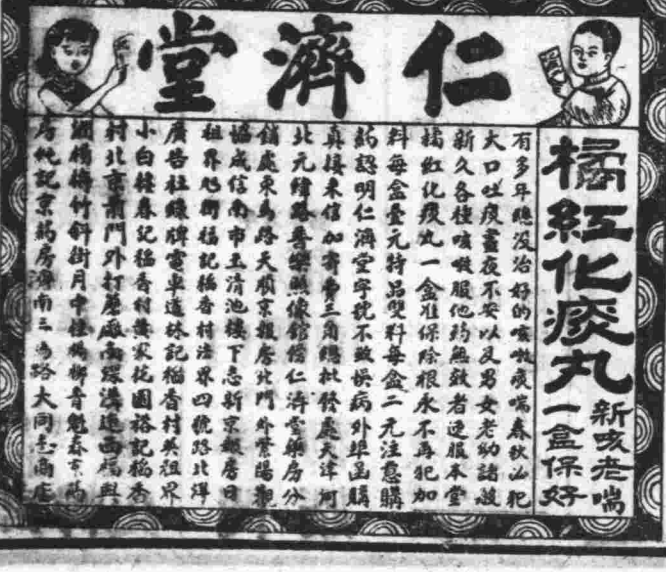 仁濟堂
橘紅化痰丸
新咳老喘
一盒保好
有多年總没治好的咳嗽痰喘春秋必犯
大口吐痰晝夜不安以及男女老幼諸般
新久各種咳嗽服他葯無效者速服本堂
橘紅化痰丸一盒准保除根永不再犯加
料每盒壹元特品雙料每盒二元注意購
葯認明仁濟堂字號不致悞病外埠函購
真接来信加寄費三角總批發處天津河
北元緯路普樂照像館傍仁濟堂藥房分
銷處東馬路天順京報房北門外紫陽觀
協成信南市玉清池樓下志新京報房日
租界旭街福記稲香村法界四號路北洋
廣告社綠牌電車道林記稲香村英租界
小白樓春記稲香村黄家花園裕記稲香
村北京前門外打磨廠南深溝達西福興
潤楊梅竹斜街月中桂楊柳青魁春京葯
房純記京葯房濟南三馬路大同志商店